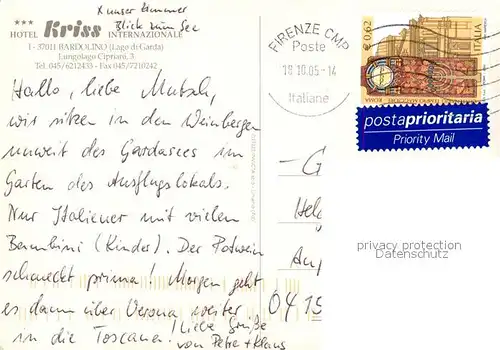 x unser Zimmer
Blick zum See
*** HOTEL Kriss INTERNAZIONALE
I - 37011 BARDOLINO (Lago di Garda)
Lungolago Cipriani, 3
Tel. 045/6212433 - Fax 045/7210242
Hallo, liebe Mutsch,
wir sitzen in den Weinbergen
unweit des Gardasees im
Garten des Ausflugslokals.
Nur Italiener mit vielen
Bambini (Kinder). Der Rotwein
schmeckt prima! Morgen geht
es dann über Verona weiter
in die Toscana! Liebe Grüße
von Petra + Klaus
FIRENZE CMP
Poste
18.10.05-14
Italiane
€0,62
ITALIA
ROMA
postaprioritaria
Priority Mail
- G
Helg
Am
04 15
privacy protection
Datenschutz